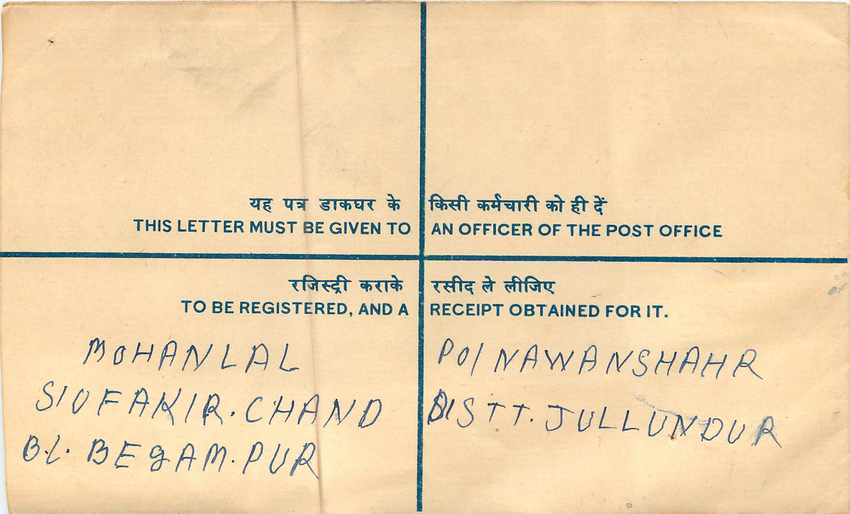 यह पत्र डाकघर के किसी कर्मचारी को ही दें
THIS LETTER MUST BE GIVEN TO AN OFFICER OF THE POST OFFICE
रजिस्ट्री कराके रसीद ले लीजिए
TO BE REGISTERED, AND A RECEIPT OBTAINED FOR IT.
MOHANLAL
S/O FAKIR. CHAND
B.L. BEGAM. PUR
PO/ NAWANSHAHR
DISTT. JULLUNDUR